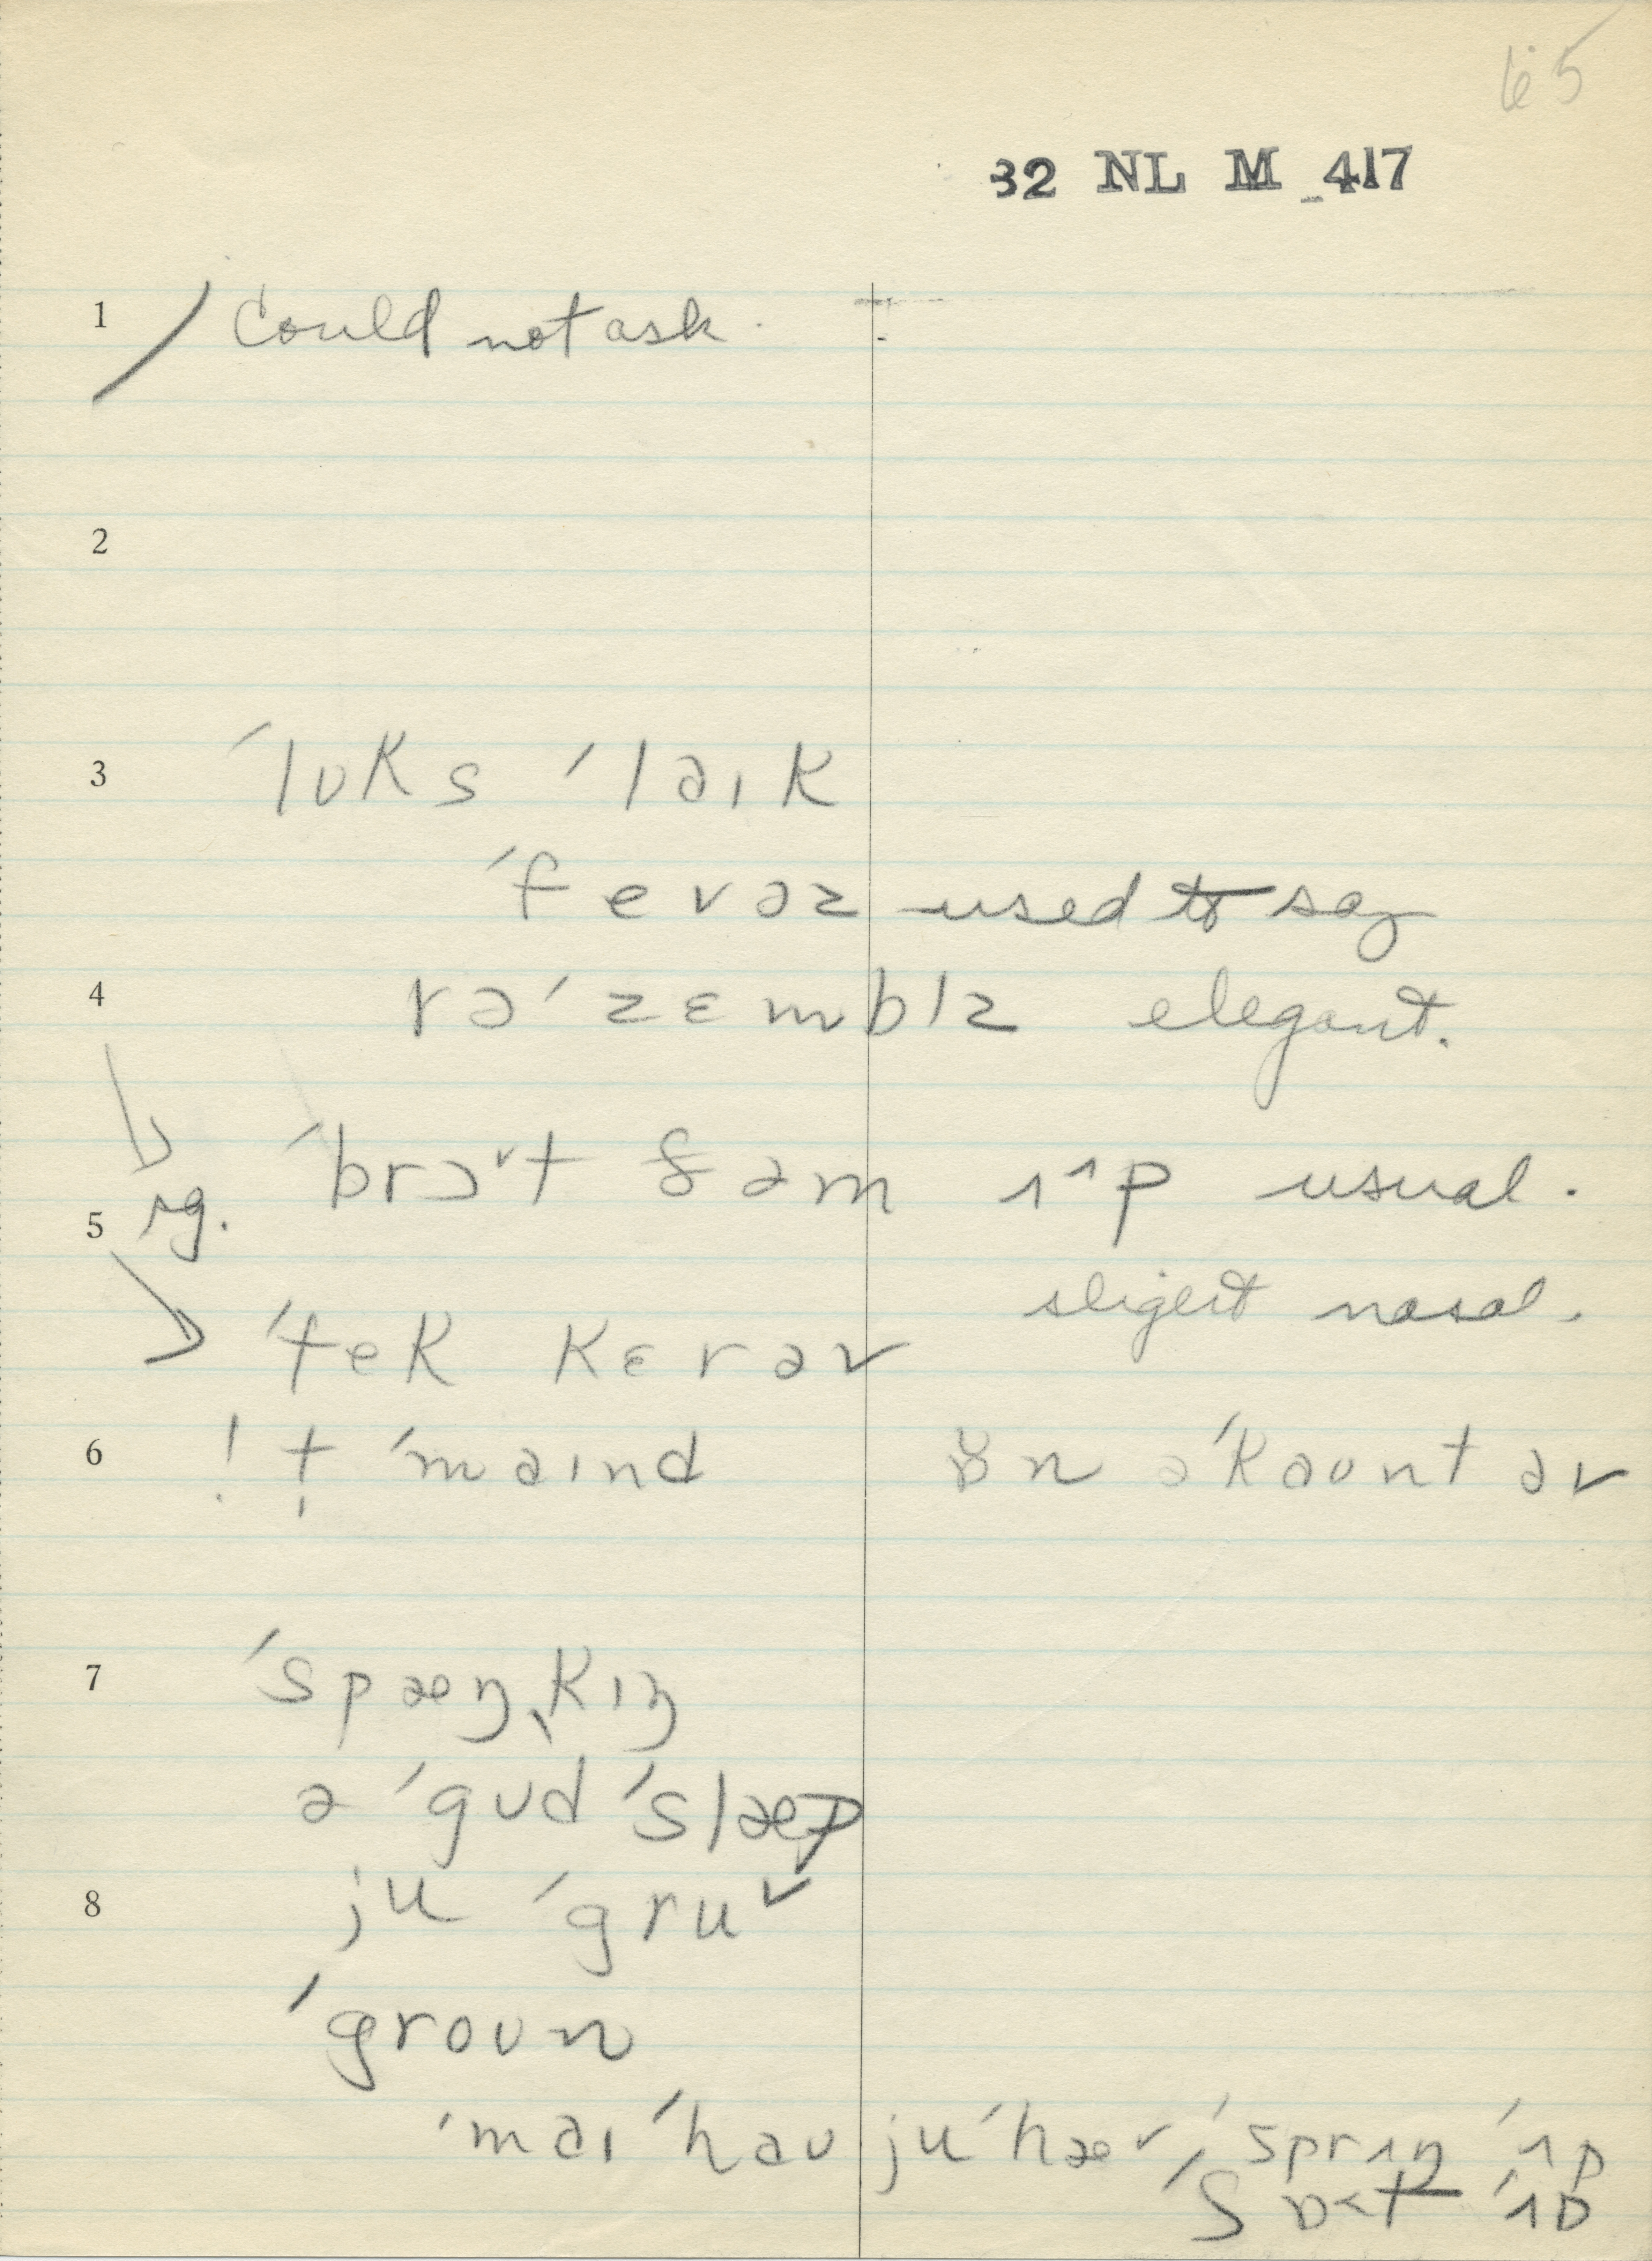 65
32 NL M 417
1 Could not ask.
2
3 ˈlʊks ˈlaɪk
ˈfevəz used to say
4 rəˈzɛmblz elegant.
ˈbrɔˇt ðəm ʌ^p usual.
5 rg.
slight nasal.
ˈtek kɛr əv
6 ! t̩ ˈmaɪnd ɒn əˈkaʊnt əv
7 ˈspæŋˌkɪŋ
ə ˈgʊd ˈslæp
8 ju ˈgruv
ˈgroʊn
ˈmaɪ ˈhaʊ ju ˈhæv ˈsprʌŋ ˈʌp
ˈʃɒ˂t ˈʌp